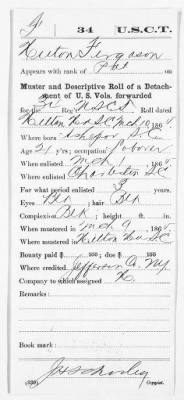 F 34 U.S.C.T.
Hilton Ferguson
Appears with rank of Pvt on
Muster and Descriptive Roll of a Detach-
ment of U. S. Vols. forwarded
for the Reg't U.S.C.T. Roll dated
Hilton Head S.C. Mch 10, 1865.
Where born Ashepoo S.C.
Age 21 y'rs; occupation Laborer
When enlisted Mch 1, 186
Where enlisted Charleston S.C.
For what period enlisted 3 years.
Eyes Blk; hair Blk
Complexion Blk; height ft. in.
When mustered in Mch 9, 186
Where mustered in Hilton Head S.C.
Bounty paid $ 100; due $ 100
Where credited Jefferson Co. N.Y.
Company to which assigned K.
Remarks:
Book mark:
(339) Copyist.